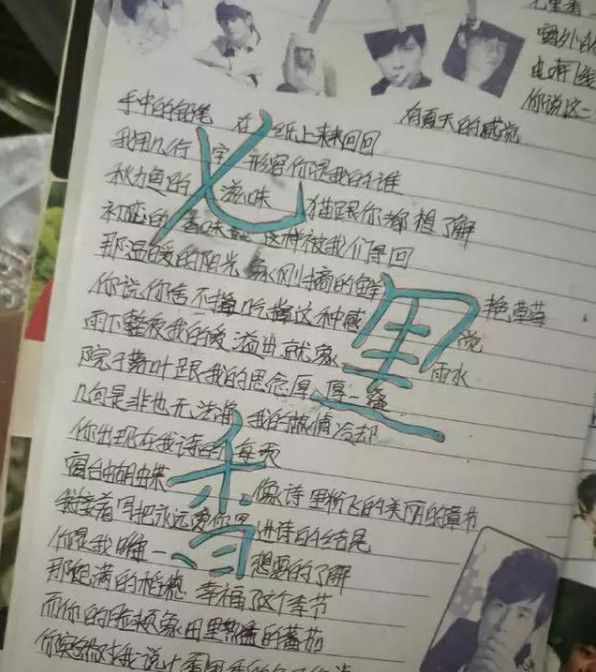 七里香
窗外的
你说这一
有夏天的感觉
手中的铅笔 在 纸上来来回回
我用几行 字 形容你是我的谁
秋刀鱼的 滋味 猫跟你都想了解
初恋的香味 这样被我们寻回
那温暖的阳光 象刚摘的鲜艳草莓
你说你舍不得吃掉这种感觉
雨下整夜我的爱溢出就象雨水
院子落叶跟我的思念厚厚一叠
几句是非也无法将我的热情冷却
你出现在我诗的每一页
窗台蝴蝶 像诗里纷飞的美丽的章节
我接着写把永远爱你写进诗的结尾
你是我唯一 想要的了解
那饱满的稻穗 幸福了这个季节
而你的脸颊象田里熟透的蕃茄
你突然对我说七里香的名字